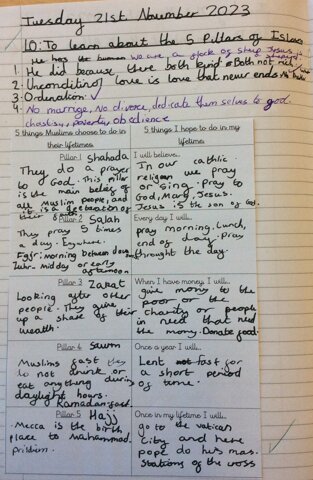 Tuesday 21st November 2023
LO: To learn about the 5 Pillars of Islam
He has human we are a flock of sheep Jesus is shepherd
1. He did because there both kind Both not rich
2. Unconditional love is love that never ends
3. Ordenation ✓
4. No marrige, No divorce, dedicate them selves to god.
chastity, poverty obedience
5 things Muslims choose to do in their lifetimes
5 things I hope to do in my lifetimes
Pillar 1 shahada
They do a prayer
to God. This pillar
is the main belief of
all Muslim people, and
it is a declaration of
their faith.
I will believe...
In our catholic
religen we pray
or sing. pray to
God, Mary, Jesus.
Jesus is the son of God.
Pillar 2 Salah
They pray 5 times
a day. Eywhere.
Fajr: morning between dawn
Zuhr- midday or early
afternoon
Every day I will...
pray morning. Lunch,
end of day. Pray
throught the day.
Pillar 3 Zakat
Looking after other
people. They give
up a share of their
wealth.
When I have money, I will...
give mony to the
poor or the
charity or people
in need that need
the mony. Donate food.
Pillar 4 Sawm
Muslims fast they
do not drink or
eat anything during
daylight hours.
Ramadan fast.
Once a year I will...
Lent fast for
a short period
of time.
Pillar 5 Hajj
Mecca is the birth
place to Muhammad.
Once in my lifetime I will...
go to the vatican
city and here
pope do his mas.
Stations of the cross